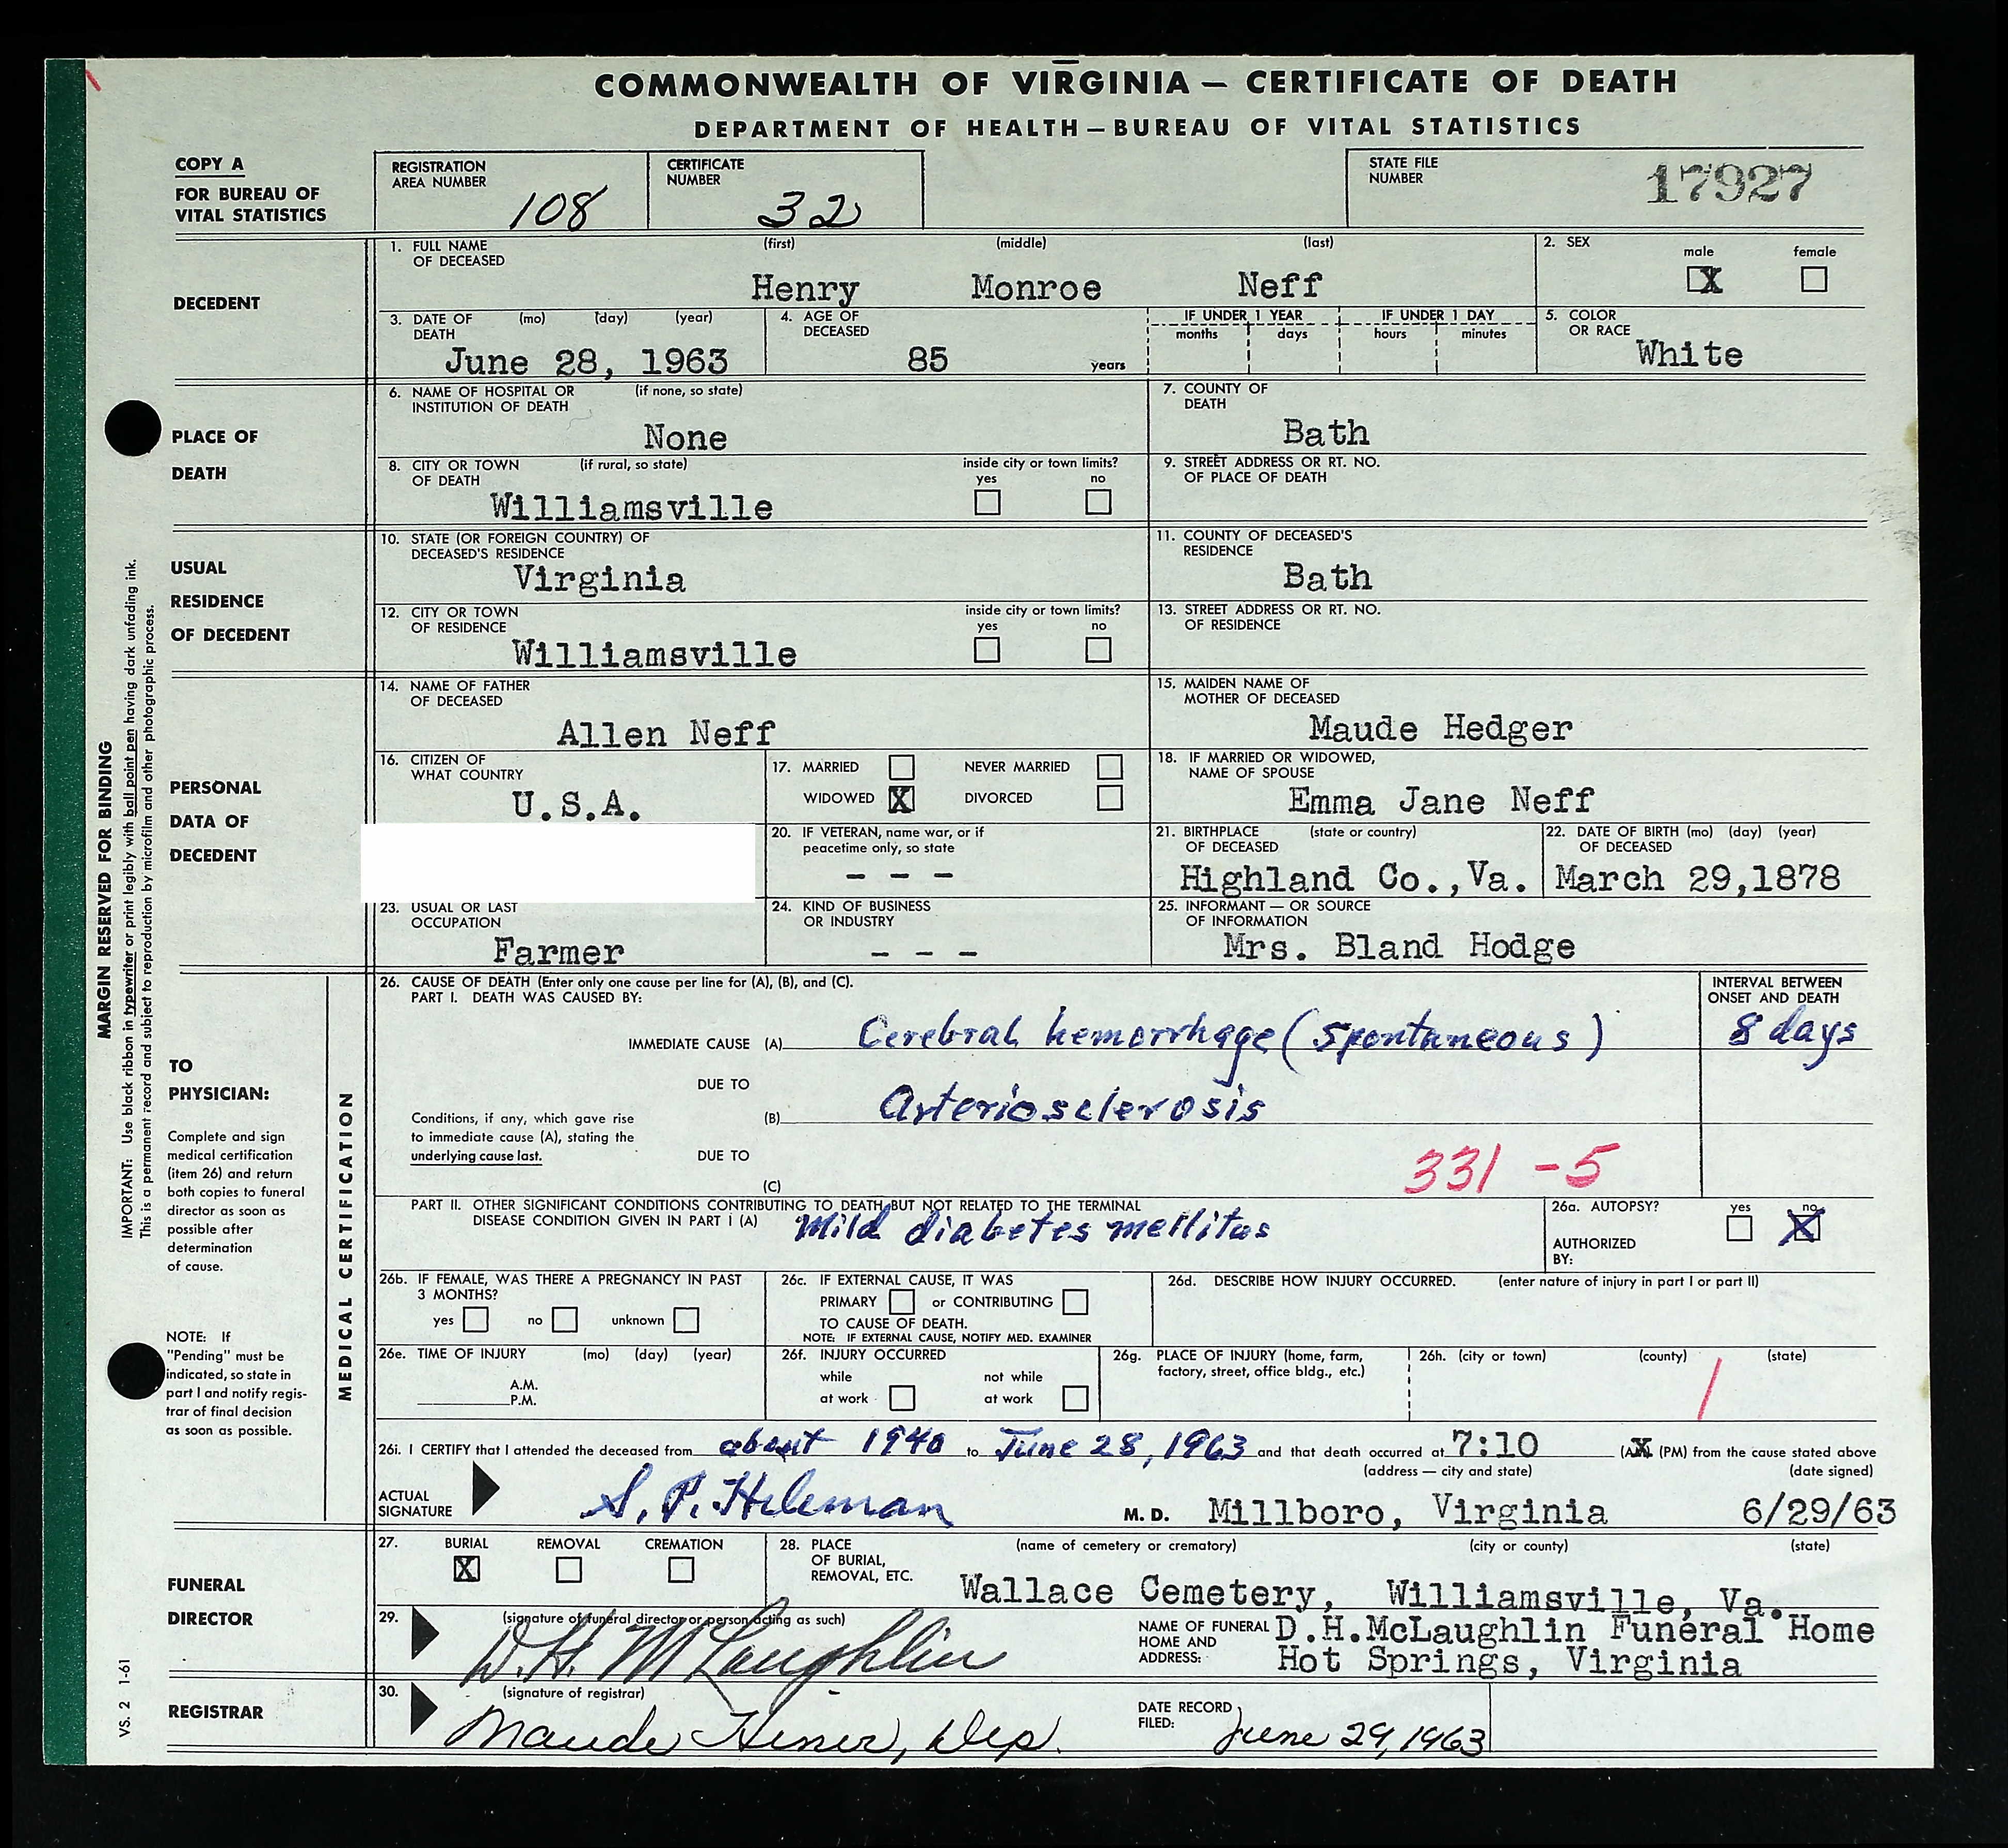 COMMONWEALTH OF VIRGINIA — CERTIFICATE OF DEATH
DEPARTMENT OF HEALTH — BUREAU OF VITAL STATISTICS
COPY A
FOR BUREAU OF
VITAL STATISTICS
REGISTRATION
AREA NUMBER
108
CERTIFICATE
NUMBER
32
STATE FILE
NUMBER
17927
DECEDENT
1. FULL NAME
OF DECEASED
(first) (middle) (last)
Henry Monroe Neff
2. SEX
male female
X
3. DATE OF DEATH (mo) (day) (year)
June 28, 1963
4. AGE OF
DECEASED
85 years
IF UNDER 1 YEAR
months days
IF UNDER 1 DAY
hours minutes
5. COLOR
OR RACE
White
PLACE OF
DEATH
6. NAME OF HOSPITAL OR (if none, so state)
INSTITUTION OF DEATH
None
7. COUNTY OF
DEATH
Bath
8. CITY OR TOWN (if rural, so state)
OF DEATH
Williamsville
inside city or town limits?
yes no
9. STREET ADDRESS OR RT. NO.
OF PLACE OF DEATH
USUAL
RESIDENCE
OF DECEDENT
10. STATE (OR FOREIGN COUNTRY) OF
DECEASED'S RESIDENCE
Virginia
11. COUNTY OF DECEASED'S
RESIDENCE
Bath
12. CITY OR TOWN
OF RESIDENCE
Williamsville
inside city or town limits?
yes no
13. STREET ADDRESS OR RT. NO.
OF RESIDENCE
PERSONAL
DATA OF
DECEDENT
14. NAME OF FATHER
OF DECEASED
Allen Neff
15. MAIDEN NAME OF
MOTHER OF DECEASED
Maude Hedger
16. CITIZEN OF
WHAT COUNTRY
U.S.A.
17. MARRIED NEVER MARRIED
WIDOWED X DIVORCED
18. IF MARRIED OR WIDOWED,
NAME OF SPOUSE
Emma Jane Neff
20. IF VETERAN, name war, or if
peacetime only, so state
- - -
21. BIRTHPLACE (state or country)
OF DECEASED
Highland Co.,Va.
22. DATE OF BIRTH (mo) (day) (year)
OF DECEASED
March 29,1878
23. USUAL OR LAST
OCCUPATION
Farmer
24. KIND OF BUSINESS
OR INDUSTRY
- - -
25. INFORMANT — OR SOURCE
OF INFORMATION
Mrs. Bland Hodge
TO
PHYSICIAN:
Complete and sign
medical certification
(item 26) and return
both copies to funeral
director as soon as
possible after
determination
of cause.
NOTE: If
"Pending" must be
indicated, so state in
part I and notify regis-
trar of final decision
as soon as possible.
MEDICAL CERTIFICATION
26. CAUSE OF DEATH (Enter only one cause per line for (A), (B), and (C).
PART I. DEATH WAS CAUSED BY:
INTERVAL BETWEEN
ONSET AND DEATH
IMMEDIATE CAUSE (A) Cerebral hemorrhage (spontaneous) 8 days
DUE TO
Conditions, if any, which gave rise
to immediate cause (A), stating the
underlying cause last.
(B) Arteriosclerosis
DUE TO
(C)
331 -5
PART II. OTHER SIGNIFICANT CONDITIONS CONTRIBUTING TO DEATH BUT NOT RELATED TO THE TERMINAL
DISEASE CONDITION GIVEN IN PART I (A) Mild diabetes mellitus
26a. AUTOPSY? yes no
X
AUTHORIZED
BY:
26b. IF FEMALE, WAS THERE A PREGNANCY IN PAST
3 MONTHS?
yes no unknown
26c. IF EXTERNAL CAUSE, IT WAS
PRIMARY or CONTRIBUTING
TO CAUSE OF DEATH.
NOTE: IF EXTERNAL CAUSE, NOTIFY MED. EXAMINER
26d. DESCRIBE HOW INJURY OCCURRED. (enter nature of injury in part I or part II)
26e. TIME OF INJURY (mo) (day) (year)
A.M.
P.M.
26f. INJURY OCCURRED
while not while
at work at work
26g. PLACE OF INJURY (home, farm,
factory, street, office bldg., etc.)
26h. (city or town) (county) (state)
26i. I CERTIFY that I attended the deceased from about 1940 to June 28, 1963 and that death occurred at 7:10 (AM) (PM) from the cause stated above
(address — city and state) (date signed)
ACTUAL
SIGNATURE
S. P. Hileman
M. D. Millboro, Virginia 6/29/63
FUNERAL
DIRECTOR
27. BURIAL REMOVAL CREMATION
X
28. PLACE
OF BURIAL,
REMOVAL, ETC.
(name of cemetery or crematory) (city or county) (state)
Wallace Cemetery, Williamsville, Va.
29. (signature of funeral director or person acting as such)
D.H. McLaughlin
NAME OF FUNERAL
HOME AND
ADDRESS:
D.H.McLaughlin Funeral Home
Hot Springs, Virginia
REGISTRAR
30. (signature of registrar)
Maude Hiner, Dep.
DATE RECORD
FILED:
June 29, 1963
MARGIN RESERVED FOR BINDING
IMPORTANT: Use black ribbon in typewriter or print legibly with ball point pen having dark unfading ink.
This is a permanent record and subject to reproduction by microfilm and other photographic process.
VS. 2 1-61